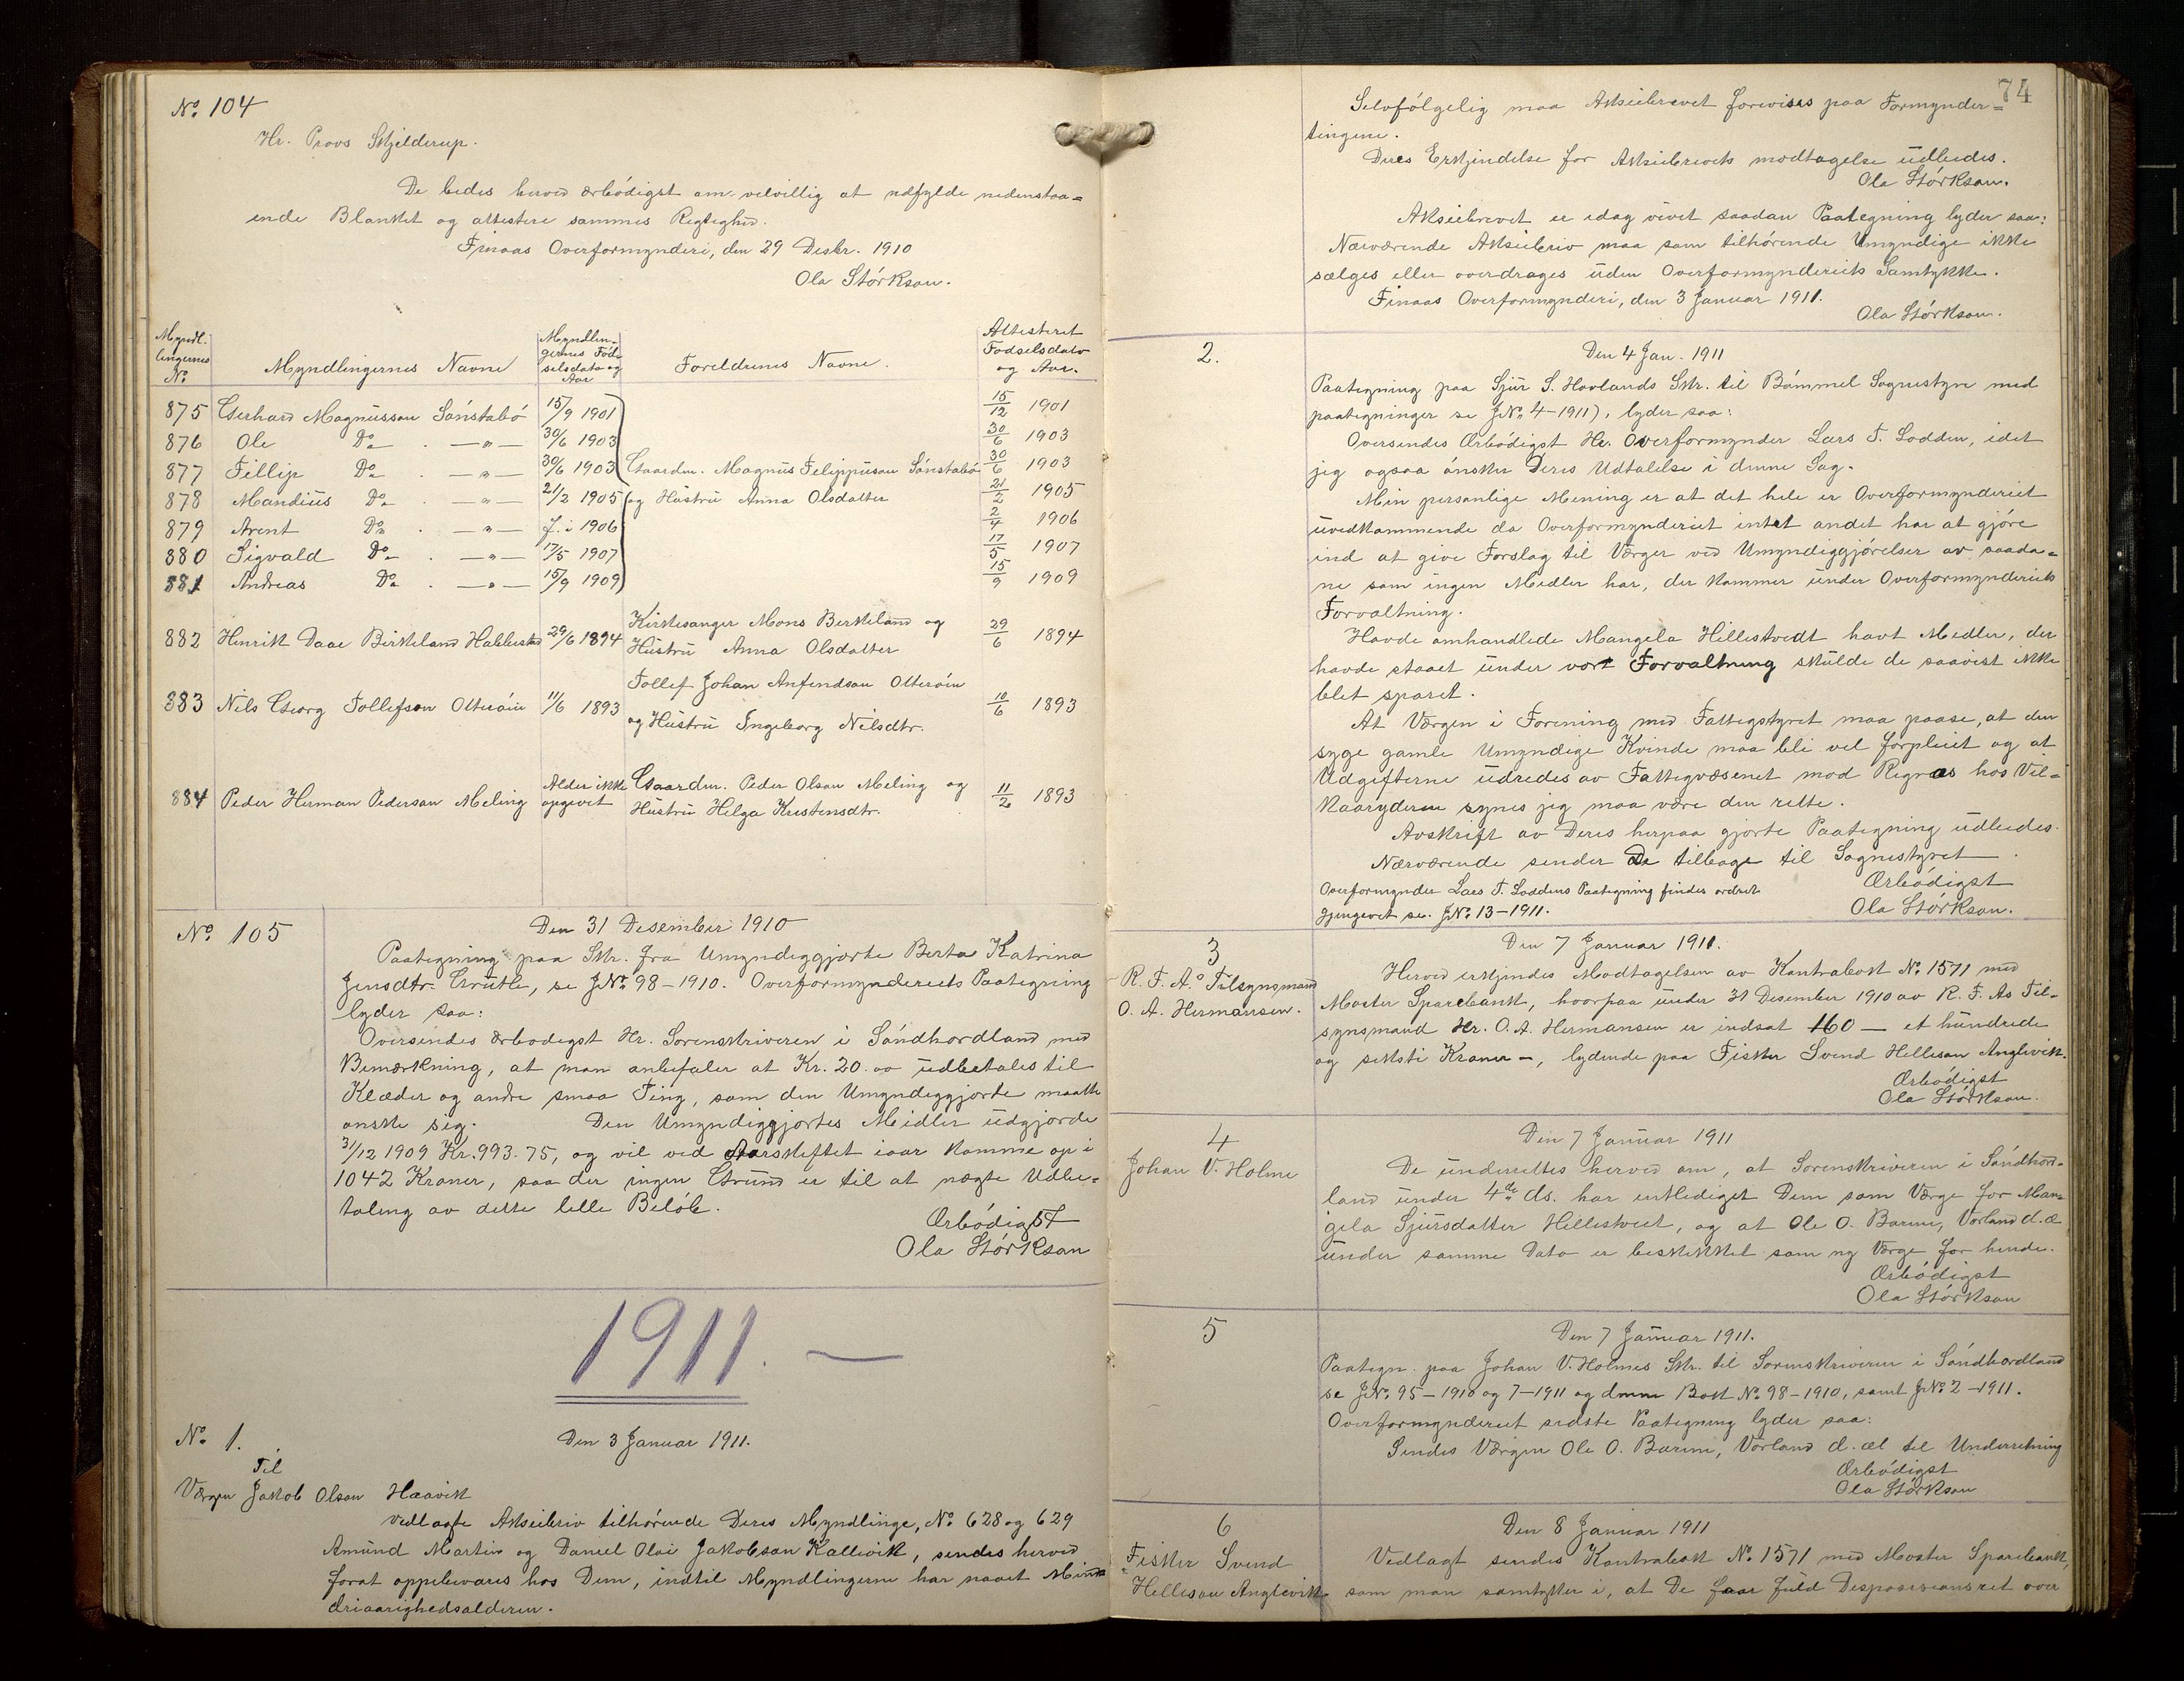 No. 104
Hr. Provs Skjelderup.
De bedes herved ærbödigst om velvillig at udfylde nedenstaa=
ende Blanket og attestere sammes Rigtighed.
Finaas Overformynderi, den 29 Desbr. 1910
Ola Störkson.
Myndl. lingernes No. Myndlingernes Navne Myndlin- gernes Föd- selsdato og Aar Foreldrenes Navne. Attesteret Fodselsdato og Aar.
875 Gerhard Magnusson Sönstabö 15/9 1901 15/12 1901
876 Ole Do — " — 30/6 1903 30/6 1903
877 Fillip Do — " — 30/6 1903 Gaardm. Magnus Filippuson Sönstabö 30/6 1903
878 Mandius Do — " — 21/2 1905 og Hustru Anna Olsdatter 21/2 1905
879 Arent Do — " — f. i 1906 2/4 1906
880 Sigvald Do — " — 17/5 1907 17/5 1907
881 Andreas Do — " — 15/9 1909 15/9 1909
882 Henrik Daae Birkeland 29/6 1894 Kirkesanger Mons Berkeland og Hustru Anna Olsdatter 29/6 1894
883 Nils Georg Tollefson Otteröin 11/6 1893 Tollef Johan Anfendson Otteröin og Hustru Ingeborg Nilsdtr. 10/6 1893
884 Peder Herman Pederson Meling Alder ikke opgevet Gaardm. Peder Olson Meling og Hustru Helga Kristensdtr. 11/2 1893
No. 105
Den 31 Desember 1910
Paategning paa Skr. fra Umyndiggjorte Berta Katrina
Jensdtr. Grutle, se JNo. 98-1910. Overformynderiets Paategning
lyder saa:
Oversendes ærbodigst Hr. Sorenskriveren i Söndhordland med
Bemærkning, at man anbefaler at Kr. 20.00 udbetales til
Klæder og andre smaa Ting, som den Umyndiggjorte maatte
onske sig. Den Umyndiggjortes Midler udgjorde
31/12 1909 Kr. 993.75, og vil ved Aarskiftet iaar komme op i
1042 Kroner, saa der ingen Grund er til at nægte Udbe=
taling av dette lille Belöb.
Ærbödigst
Ola Störkson
1911. —
No. 1.
Den 3 Januar 1911.
Til
Værgen Jakob Olson Haavik
Vedlagte Aksiebriv tilhörende Deres Myndlinge, No. 628 og 629
Amund Martin og Daniel Olai Jakobson Kallevik, sendes herved
forat oppbevares hos Dem, indtil Myndlingerne har naaet Mind=
driaarighedsalderen.
74
Selvfölgelig maa Aksiebrevet forevises paa Formynder=
tingene.
Deres Erkjendelse for Aksiebrevets modtagelse udbedes.
Ola Störkson.
Aksiebrevet er idag givet saadan Paategning lyder saa:
Nærværende Aksiebriv maa som tilhörende Umyndige ikke
sælges eller overdrages uden Overformynderiets Samtykke.
Finaas Overformynderi, den 3 Januar 1911.
Ola Störkson.
2.
Den 4 Jan. 1911
Paategning paa Sjur S. Hovlands Skr. til Bömmel Sognestyre med
paategninger se JNo. 4-1911), lyder saa:
Oversendes Ærbödigst Hr. Overformynder Lars T. Lodden, idet
jeg ogsaa önsker Deres Udtalelse i denne Sag.
Min personlige Mening er at det hele er Overformynderiet
uvedkommende da Overformynderiet intet andet har at gjöre
ind at give Forslag til Værger ved Umyndiggjörelser av saada=
ne som ingen Medler har, der kommer under Overformynderiets
Forvaltning.
Havde omhandlede Mangela Hillestvedt havt Medler, der
havde staaet under vort Forvaltning skulde de saavist ikke
blet sparet.
At Værgen i Forening med Fattigstyret maa paase, at den
syge gamle Umyndige Kvinde maa bli vel forpleiet og at
Udgifterne udredes av Fattigvæsenet mod Regres hos Vil=
kaaryderne synes jeg maa være den rette.
Avskrift av Deres herpaa gjorte Paategning udbedes.
Nærværende sender De tilbage til Sognestyret.
Overformynder Lars T. Loddens Paategning findes ordret
gjengevet se. JNo. 13-1911.
Ærbödigst
Ola Störkson.
3
R. F. A's Tilsynsmand
O. A. Hermansen.
Den 7 Januar 1911.
Herved erkjendes Modtagelsen av Kontrabok No. 1571 med
Moster Sparebank, hvorpaa under 31 Desember 1910 av R. F. As Til=
synsmand Hr. O. A. Hermansen er indsat 160 — et hundrede
og seksti Kroner —, lydende paa Fisker Svend Helleson Anglevik.
Ærbödigst
Ola Störkson.
4
Johan V. Holme
Den 7 Januar 1911
De underrettes herved om, at Sorenskriveren i Söndhord=
land under 4de ds. har entlediget Dem som Værge for Man=
gela Sjursdatter Hillestveit, og at Ole O. Barme, Vorland d. æ
under samme Dato er beskikket som ny Værge for hende.
Ærbödigst
Ola Störkson
5
Den 7 Januar 1911.
Paategn. paa Johan V. Holmes Skr. til Sorenskriveren i Söndhordland
se JNo. 95-1910 og 7-1911 og denne Bok No. 98-1910, samt JNo. 2-1911.
Overformynderiet sidste Paategning lyder saa:
Sendes Værgen Ole O. Barme, Vorland d. æl til Underretning
Ærbödigst
Ola Störkson
6
Fisker Svend
Helleson Anglevik
Den 8 Januar 1911
Vedlagt sendes Kontrabok No. 1571 med Moster Sparebank,
som man samtykker i, at De faar fuld Desposisionsret over